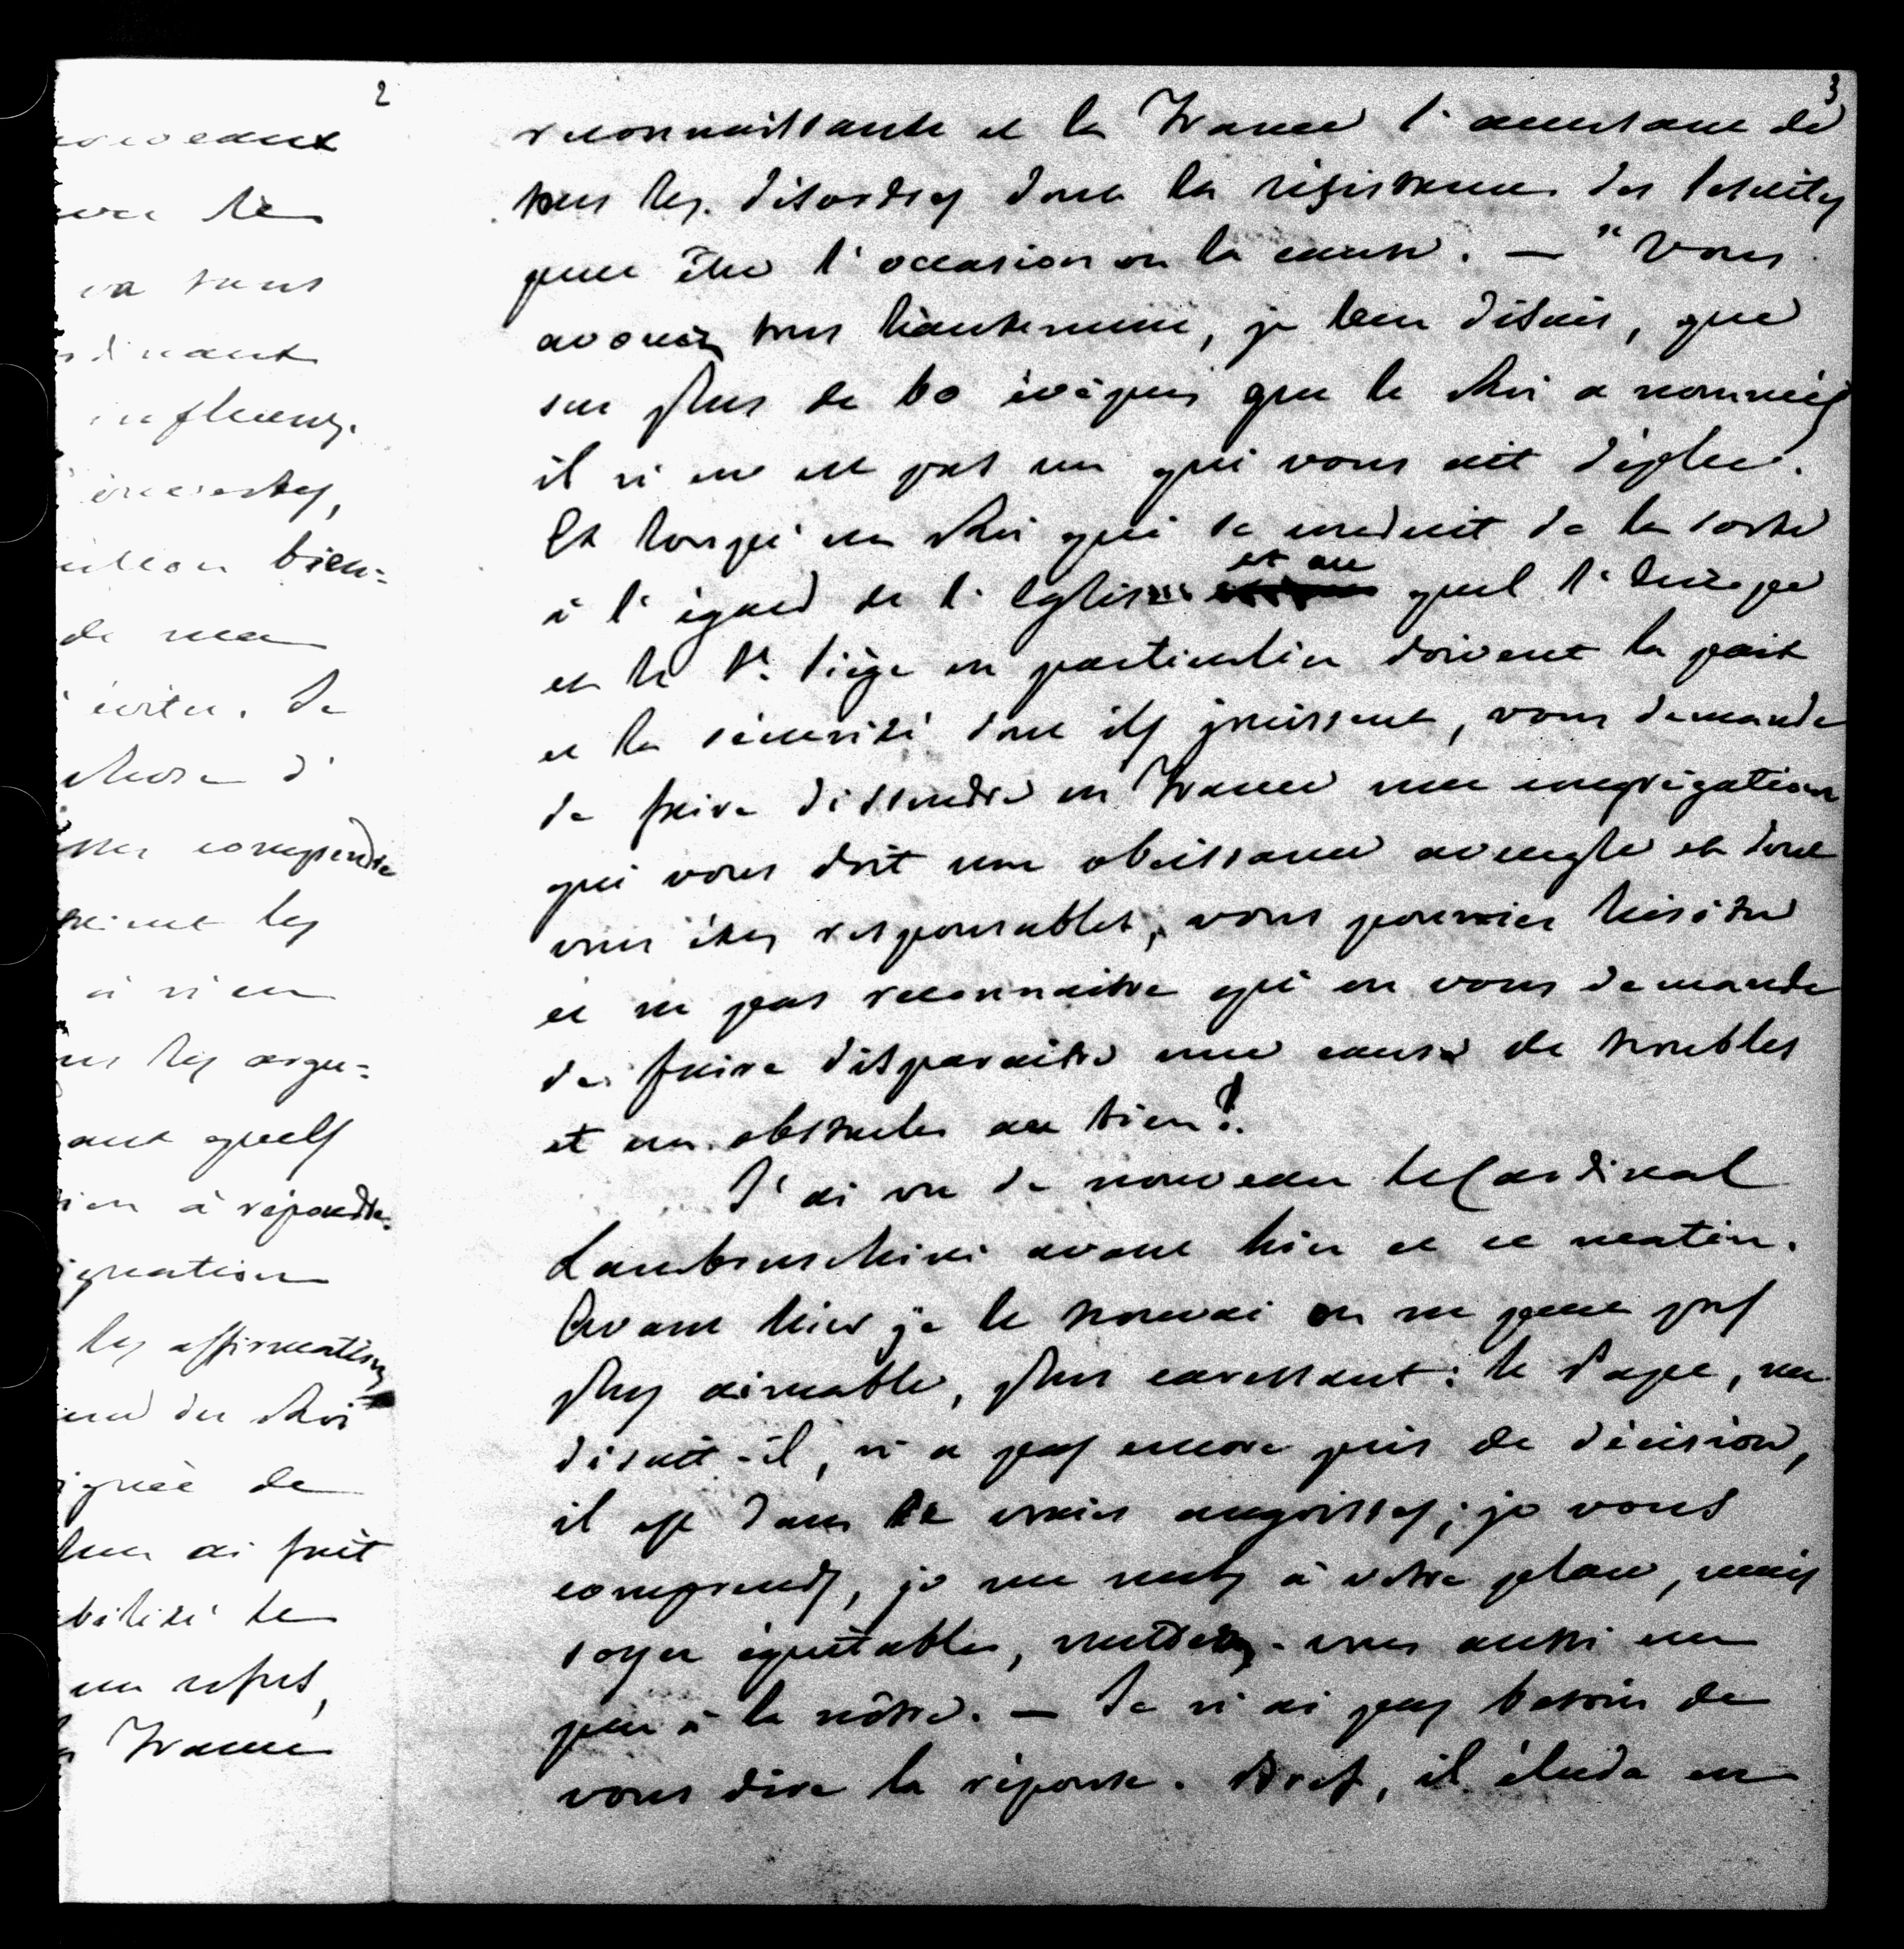 2
nouveaux
va tous
influences.
bien-
de ma
éviter. Je
chose d'
comprendre
les
à rien
les argu-
quels
rien à répondre.
les affirmations
du Roi
de
ai fait
un refus,
France
3
reconnaissante et la France l'accusant de
tous les désordres dont la résistance des Jésuites
peut être l'occasion ou la cause. — "Vous
avouez tous hautement, je leur disais, que
sur plus de 60 évêques que le Roi a nommés
il n'en est pas un qui vous ait déplu.
Et lorsqu'un Roi qui se conduit de la sorte
à l'égard de l'Eglise et au quel l'Europe
et le St. Siège en particulier doivent la paix
et la sécurité dont ils jouissent, vous demande
de faire dissoudre en France une congrégation
qui vous doit une obéissance aveugle et dont
vous êtes responsables, vous pourriez hésiter
et ne pas reconnaitre qu'on vous demande
de faire disparaitre une cause de troubles
et un obstacle au bien!
J'ai vu de nouveau le Cardinal
Lambruschini avant hier et ce matin.
Avant hier je le trouvai on ne peut pas
plus aimable, plus caressant: le Pape, me
disait-il, n'a pas encore pris de décision,
il est dans de vraies angoisses; je vous
comprends, je me mets à votre place, mais
soyez équitable, mettez-vous aussi un
peu à la nôtre. — Je n'ai pas besoin de
vous dire la réponse. Bref, il éluda en